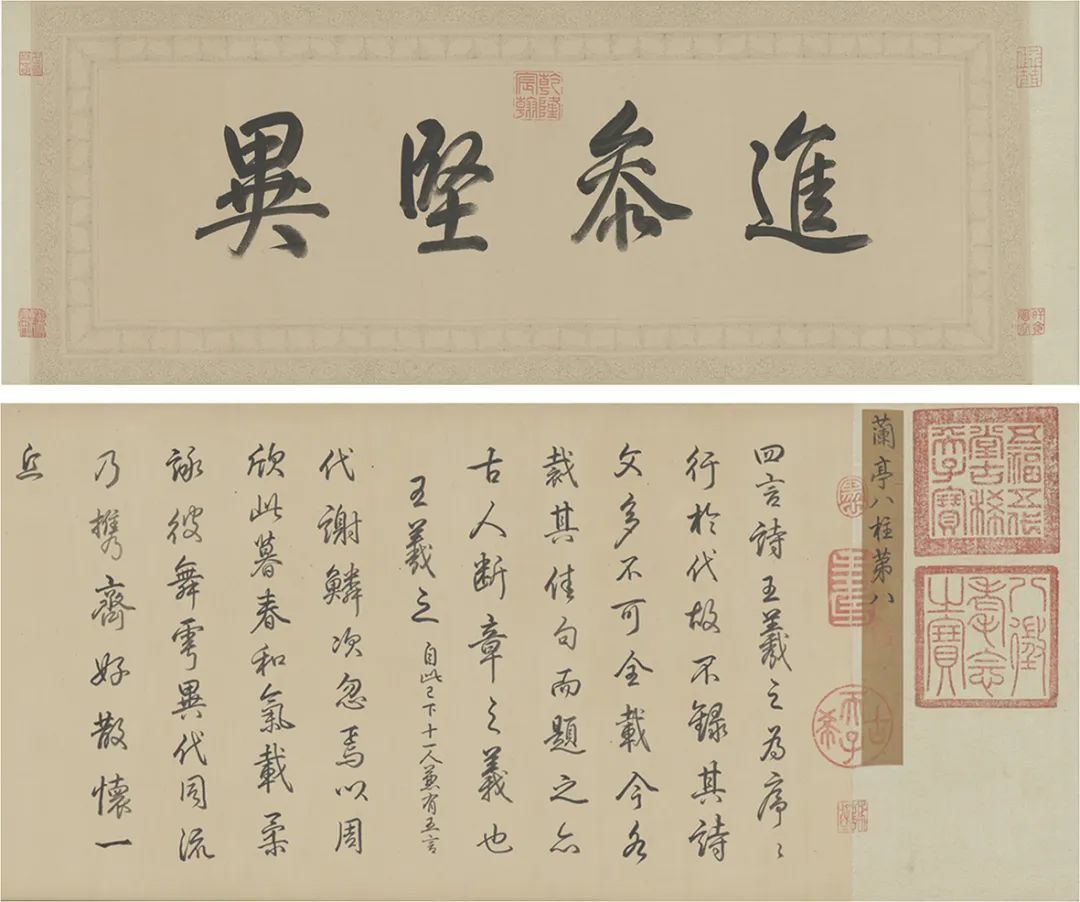 進叅堅異
乾隆宸翰
五福五代堂古稀天子寶
八徵耄念之寶
蘭亭八柱第八
古希天子
四言詩王羲之為序〻
行於代故不錄其詩
文多不可全載今各
裁其佳句而題之亦
古人断章之義也
王羲之 自此已下十一人兼有五言
代謝鱗次忽焉以周
欣此暮春和氣載柔
詠彼舞雩異代同流
乃携齊好散懷一
丘